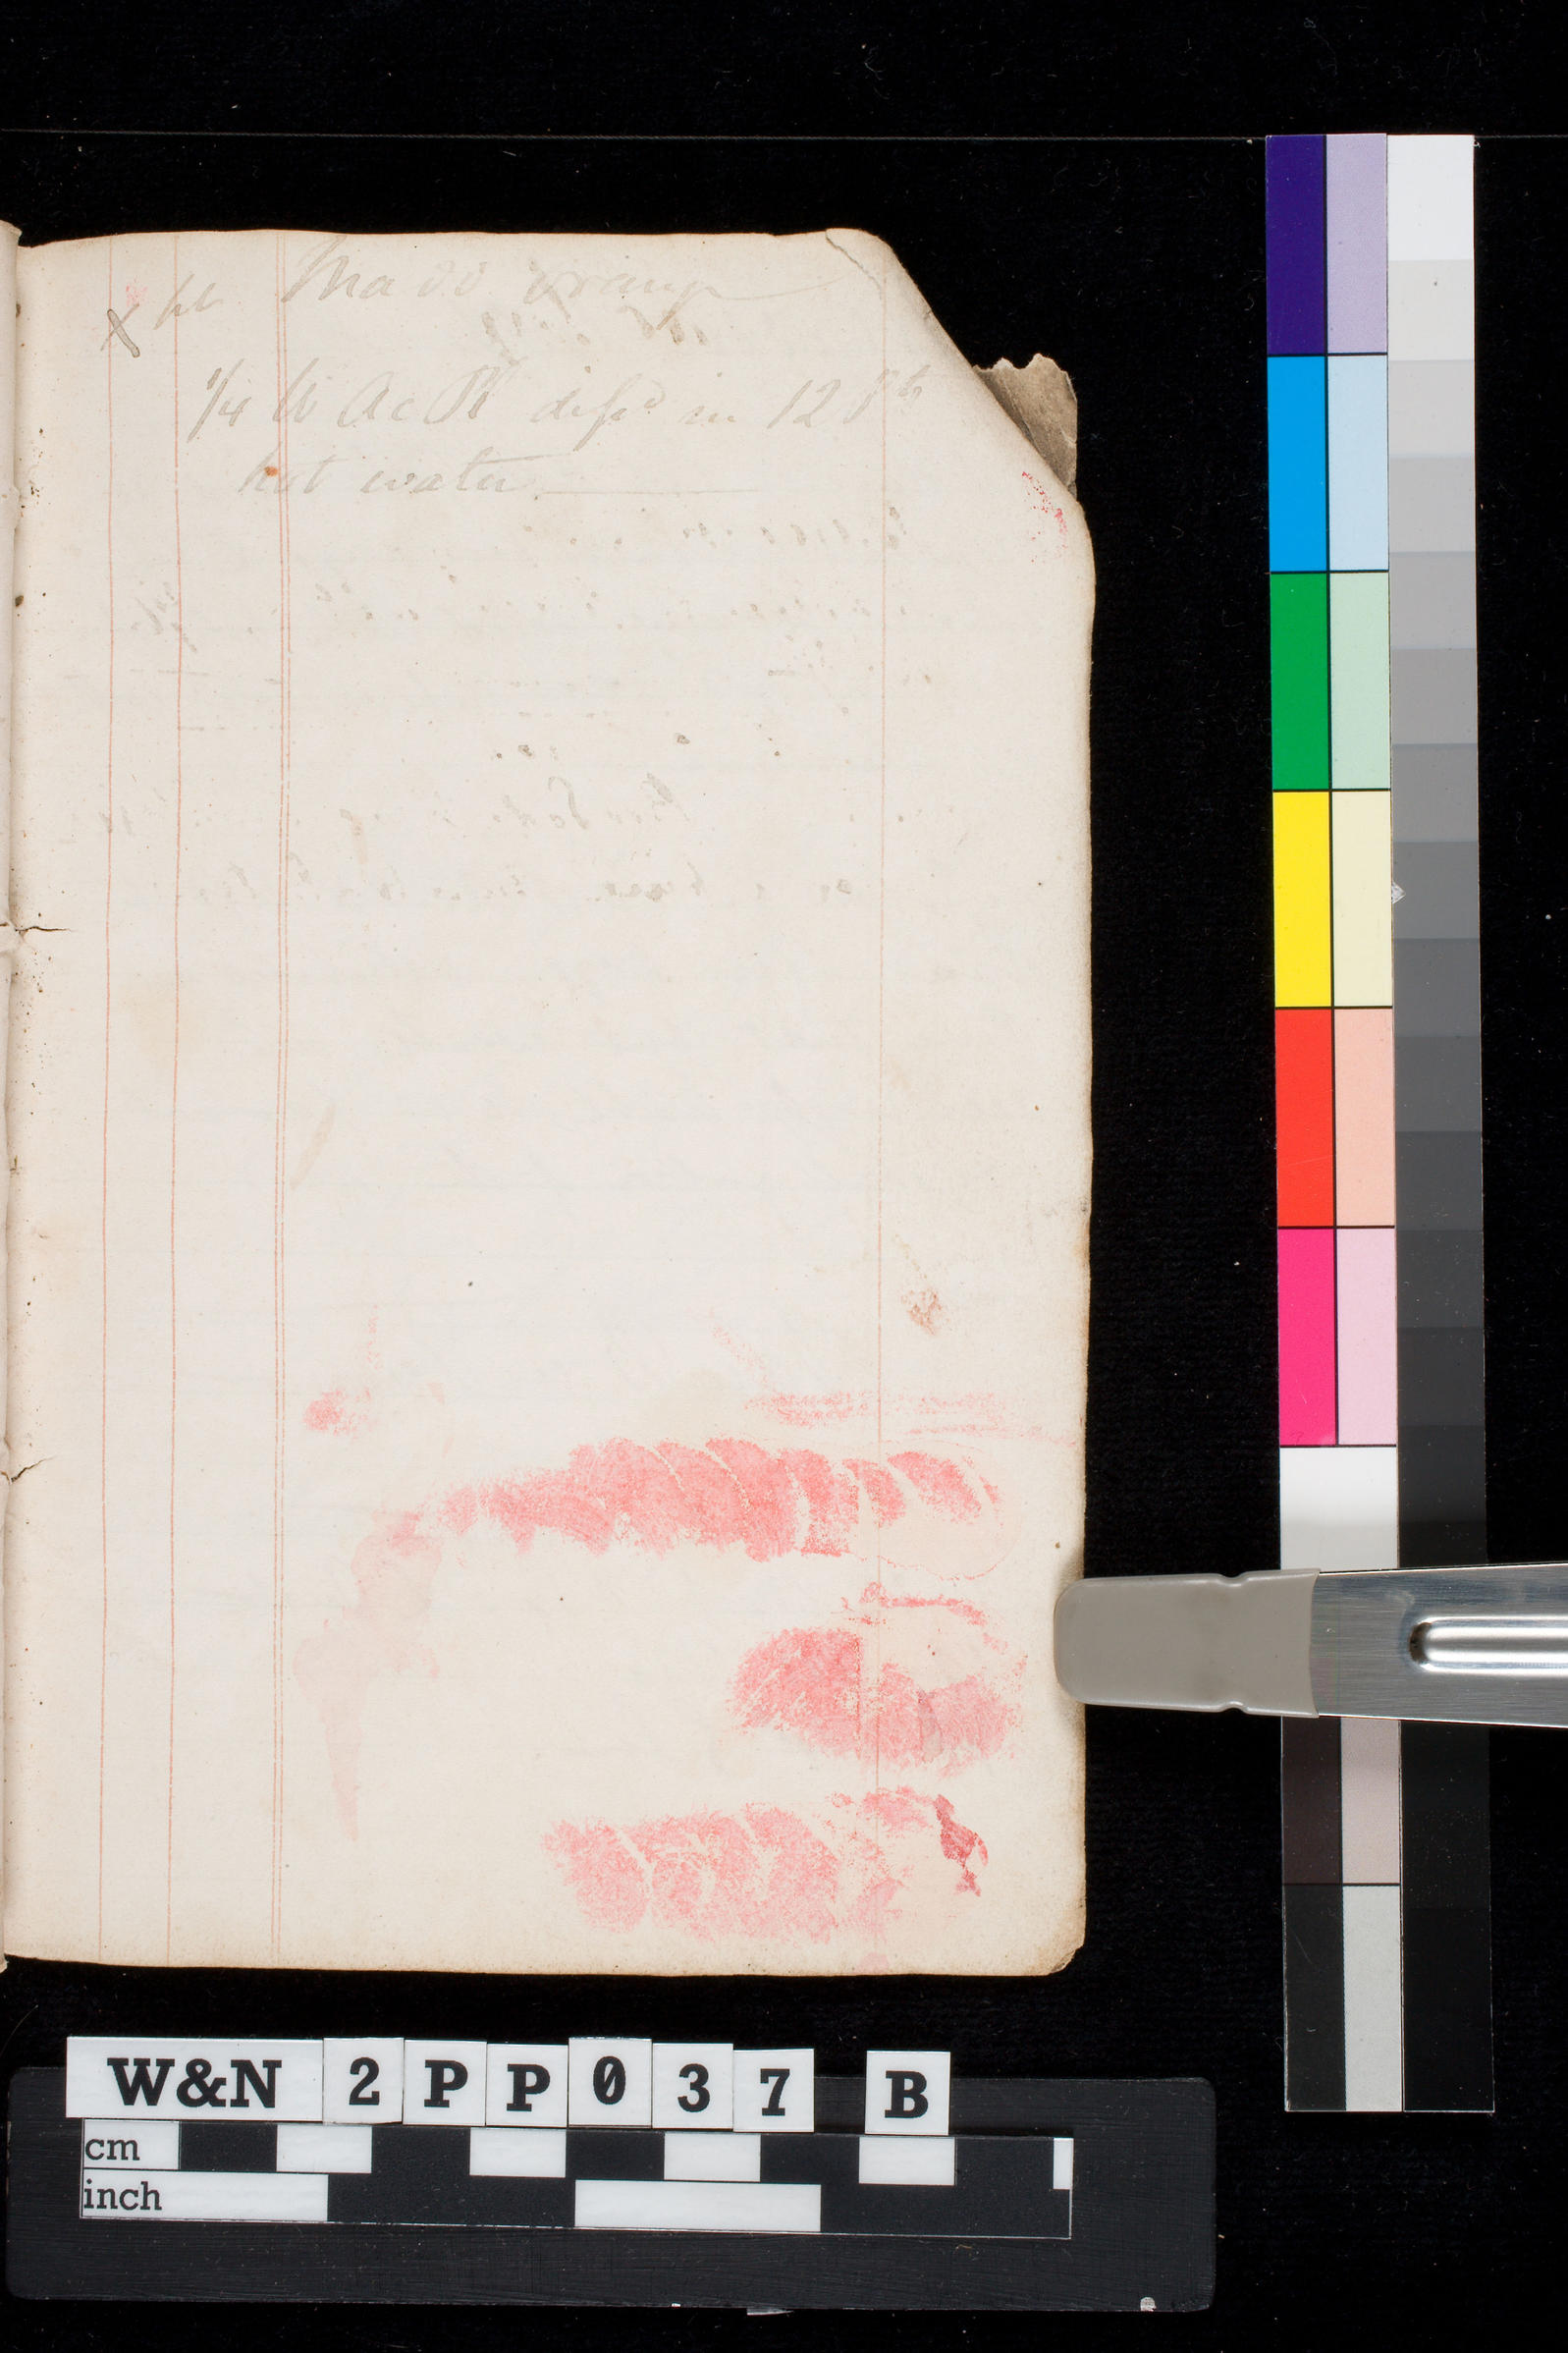 X
Madd orange
1/4 lb Ac Pb diss^d in 12 P^ts
hot water
W&N 2PP037 B
cm
inch